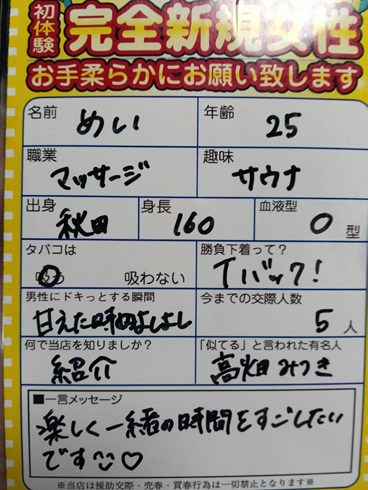 初体験 完全新規女性
お手柔らかにお願い致します
名前 めい 年齢 25
職業 マッサージ 趣味 サウナ
出身 秋田 身長 160 血液型 O 型
タバコは 勝負下着って？
吸う 吸わない Tバック!
男性にドキっとする瞬間 今までの交際人数
甘えた時のよしよし 5 人
何で当店を知りましたか？ 「似てる」と言われた有名人
紹介 高畑みつき
■一言メッセージ
楽しく一緒の時間をすごしたい
です♡
※当店は援助交際・売春・買春行為は一切禁止となります※